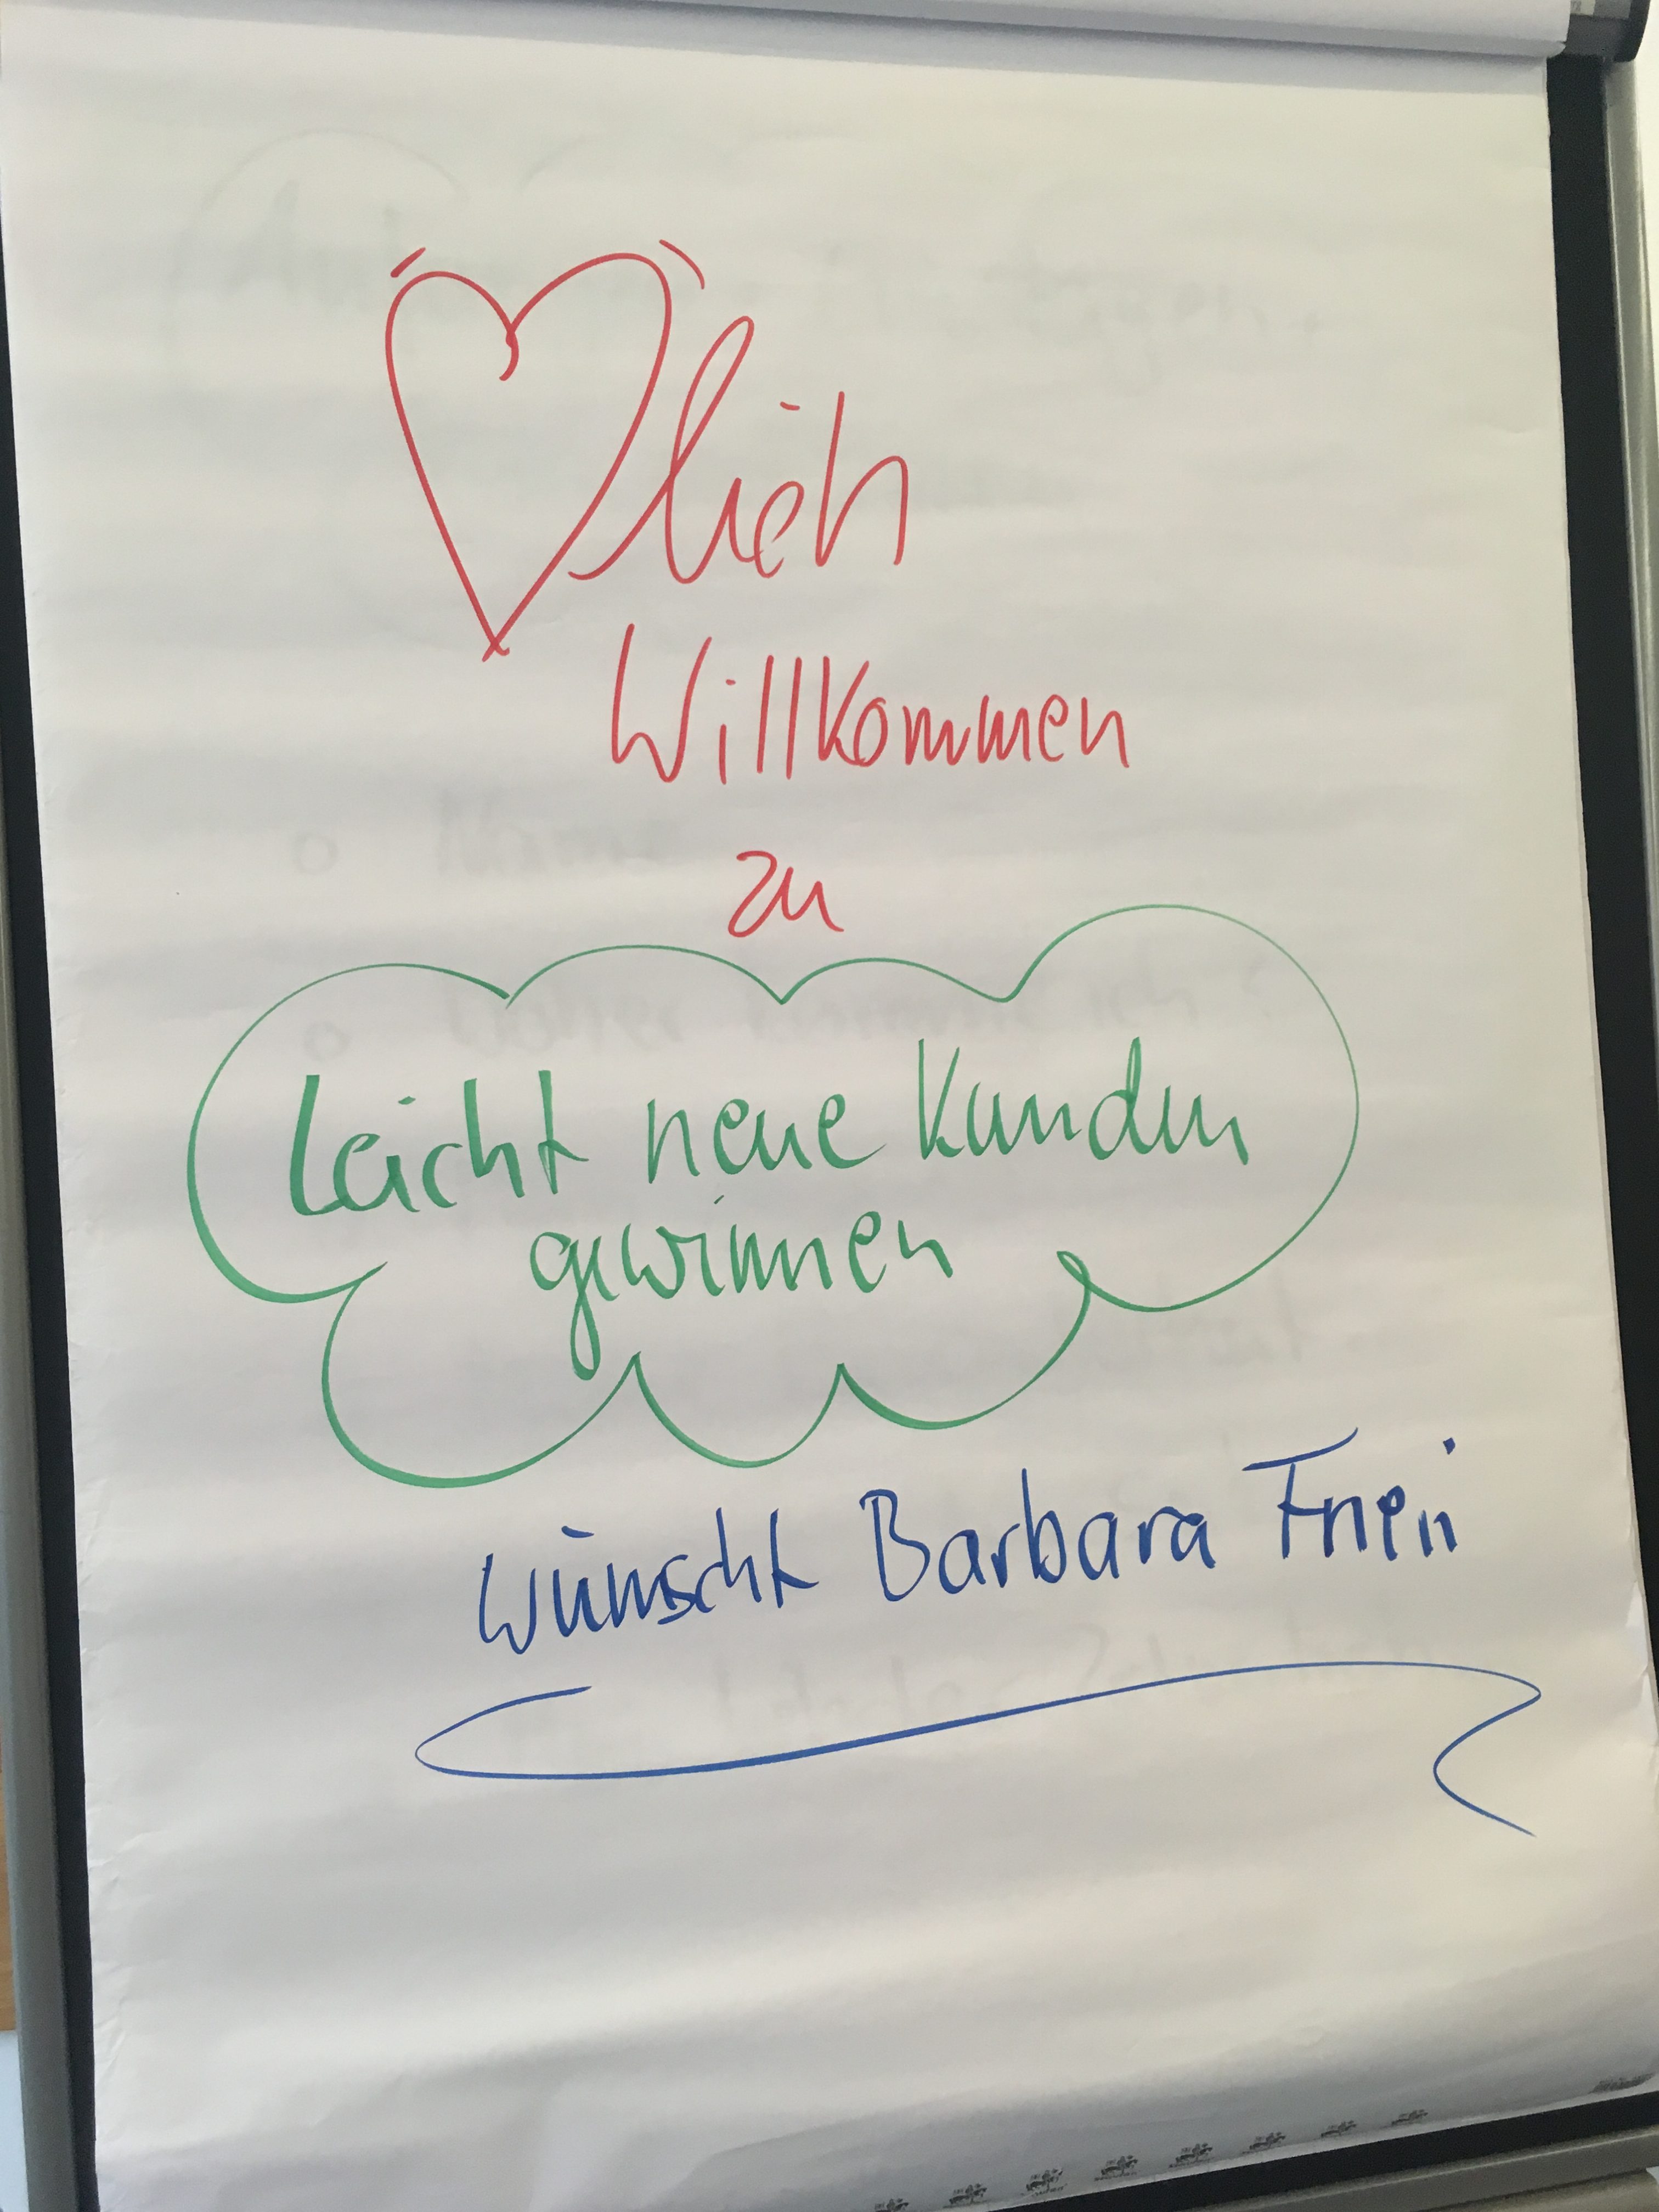 ♡lich
Willkommen
zu
Leicht neue Kunden
gewinnen
wünscht Barbara Frei